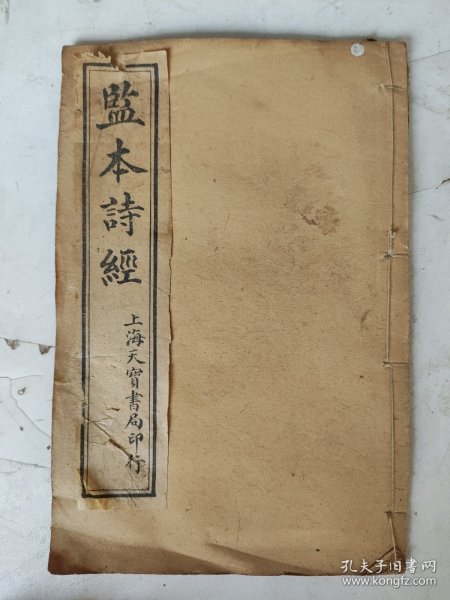 監本詩經
上海天寶書局印行
孔夫子旧书网
www.kongfz.com